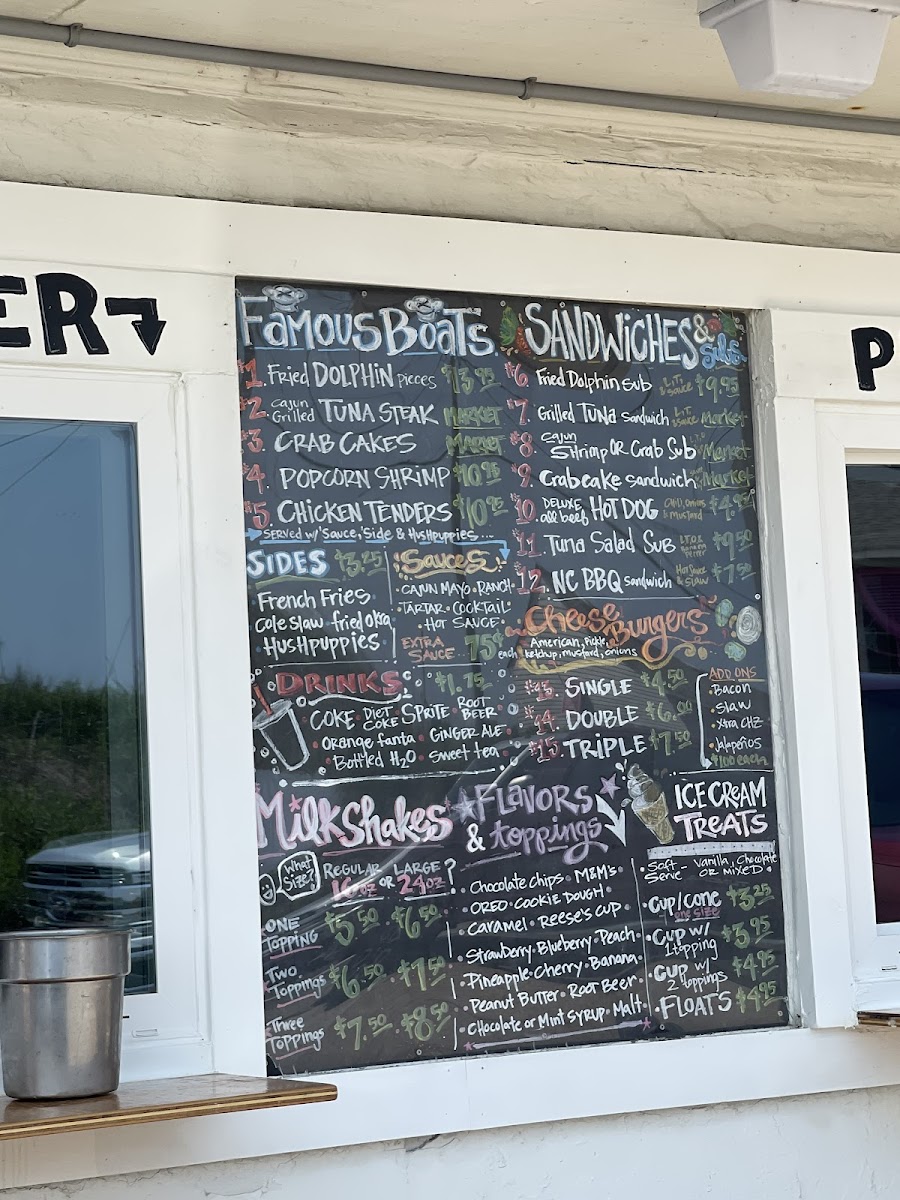 ER
P
Famous Boats
#1. Fried DOLPHIN Pieces $13.95
#2. Cajun Grilled TUNA STEAK MARKET
#3. CRAB CAKES MARKET
#4. POPCORN SHRIMP $10.95
#5. CHICKEN TENDERS $10.95
SERVED w/ Sauce, Side & Hushpuppies...
SIDES $3.25
French Fries
Cole slaw • fried okra
HUSHPUPPIES
Sauces
CAJUN MAYO • RANCH
TARTAR • COCKTAIL
• HOT SAUCE •
EXTRA SAUCE 75¢ each
DRINKS $1.75
COKE • DIET COKE • SPRITE • ROOT BEER
• Orange fanta • GINGER ALE
• Bottled H2O • Sweet tea
SANDWICHES & Subs
#6. Fried Dolphin Sub L.T. & Sauce $9.95
#7. Grilled TUNA Sandwich L.T. & Sauce Market
#8. Cajun Shrimp OR Crab Sub Market
#9. Crabcake sandwich Market
#10. DELUXE all beef HOT DOG Chili, onions & Mustard $4.95
#11. Tuna Salad SUB $9.50
#12. NC BBQ Sandwich Hot Sauce & SLAW $7.50
Cheese Burgers
American, Pickle, ketchup, mustard, onions
#13. SINGLE $4.50
#14. DOUBLE $6.00
#15. TRIPLE $7.50
ADD ONS
• Bacon
• Slaw
• Xtra CHZ
• Jalapeños
$1.00 each
Milkshakes
What Size?
REGULAR 16oz OR LARGE 24oz ?
ONE TOPPING $5.50 $6.50
Two Toppings $6.50 $7.50
Three Toppings $7.50 $8.50
FLAVORS & toppings
Chocolate Chips • M&M's
OREO • COOKIE DOUGH
CARAMEL • REESE'S CUP
Strawberry • Blueberry • Peach
Pineapple • Cherry • Banana
Peanut Butter • Root Beer
Chocolate or Mint SYRUP • Malt
ICE CREAM TREATS
• Soft Serve - Vanilla, Chocolate OR MIXED •
Cup/cone one size $3.25
Cup w/ 1 topping $3.95
Cup w/ 2 toppings $4.95
FLOATS $4.95